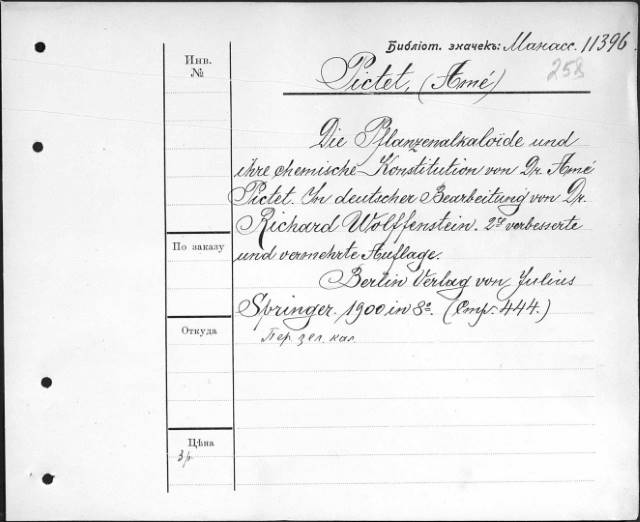 Библіот. значекъ: Манасс. 11396
258
Инв.
№
Pictet, (Amé)
Die Pflanzenalkaloïde und
ihre chemische Konstitution von Dr. Amé
Pictet. In deutscher Bearbeitung von Dr.
Richard Wolffenstein. 2te verbesserte
По заказу
und vermehrte Auflage.
Berlin Verlag von Julius
Springer. 1900 in 8°. (Стр. 444.)
Откуда
Пер зел. кал.
Цѣна
3 р